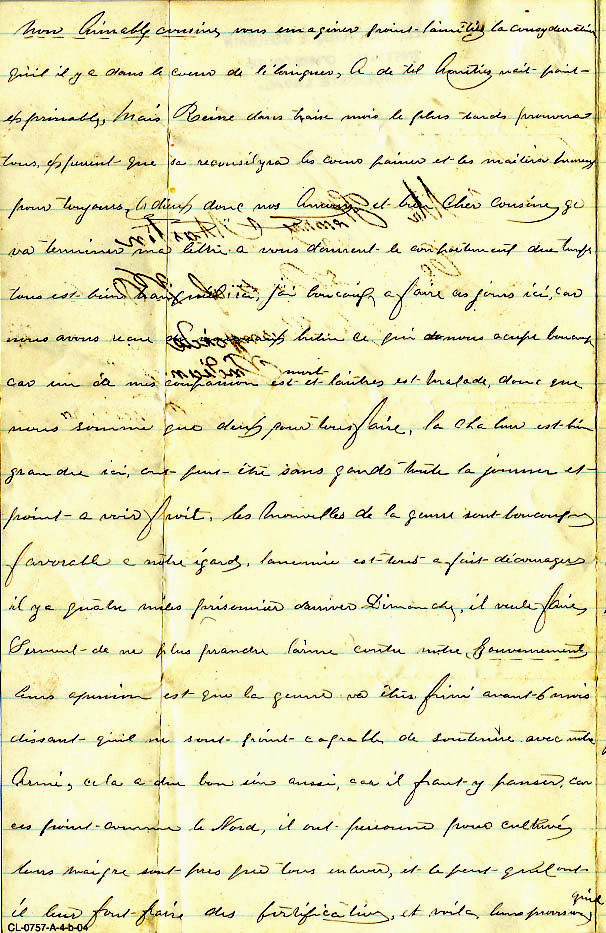 Mon Aimable cousine, vous imaginer point lamitiez la consyderation
quil il y a dans le coeur de l'éloingner, A de tel Amities nait point
exprimable, Mais Reine dans traise mois le plus tards prouvera
tous, appurent que sa reconsilyra les coeur et les
pour toujours, Adieux donc nos Amours et bien Cher cousine, ge
va terminer ma lettre a vous donnent le comportement du temps
tous est bien tranquil ici, j'ai boucoup a faire ces jours ici, car
nous avons butin ce qui nous acupe boucoup
mort
car un de mes companion est et lautres est malade, donc que
nous somme que deux pour tous faire, la chaleur est bien
grandre ici, ont peut-être sans gands toute la journer et
point a voir froit, les nouvelles de la guerre sont boucoup
favorable a notre égard, lannemie est tous a fait décourager
il y a quatre miles prisonnier darriver Dimanche, il veule faire
Serment de ne plus prandre l'arme contre notre Gouvernement,
leurs apinion est que la guerre va être finié avant 6 mois
dissant quil ne sont point capable de soutenire avec notre
Armé, cela a du bon sén aussi, car il faut y panser, car
ces point comme le Nord, il ont personne pour cultivé,
leurs naigre sont pres que tous enlever, et le peut quil ont
il leur font faire des fortification, et voila leurs provision, quil
CL-0757-A-4-b-04